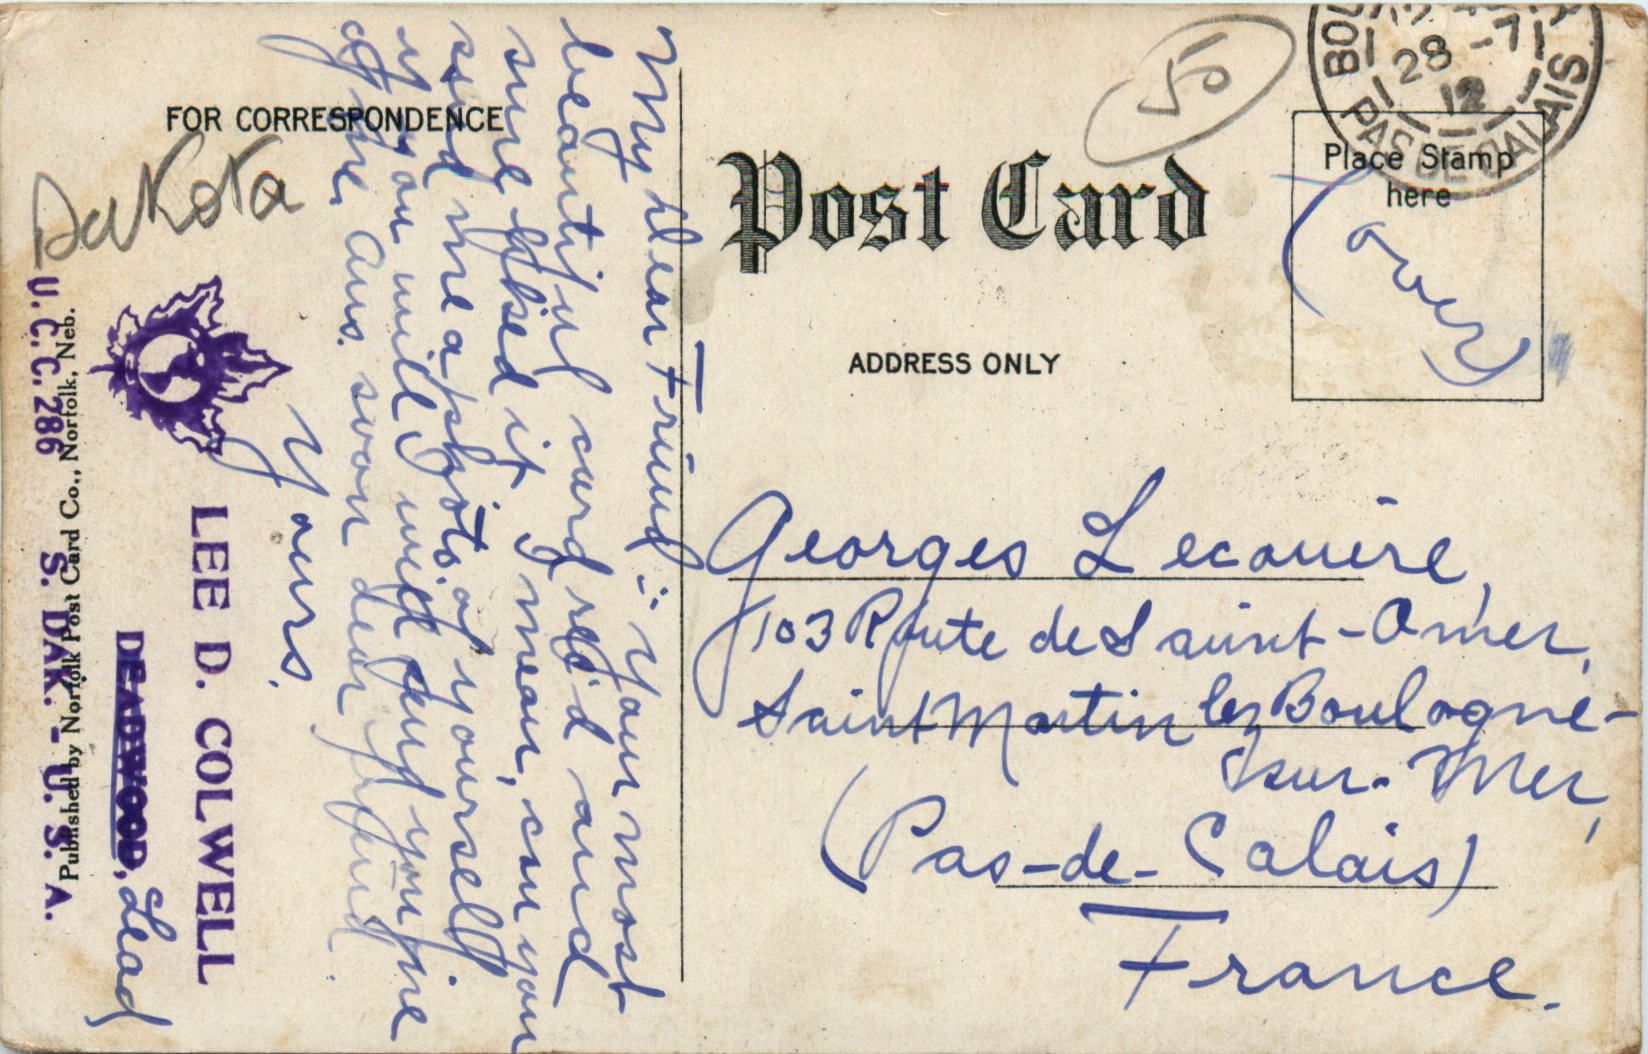 FOR CORRESPONDENCE
Dakota
My dear Friend:- Your most
beautiful card rec'd and
sure liked it. I mean, can you
send me a photo of yourself
if you will I will give you one
of me. Ans. soon dear friend.
Yours.
LEE D. COLWELL
DEADWOOD, Lead
U.C.C. 286 S. DAK. - U.S.A.
Published by Norfolk Post Card Co., Norfolk, Neb.
50
BOU
28 - 7
12
PAS DE CALAIS
Post Card
Place Stamp
here
(over)
ADDRESS ONLY
Georges Lecouire,
103 Route de Saint-Omer,
Saint Martin les Boulogne-
sur-Mer,
(Pas-de-Calais)
France.